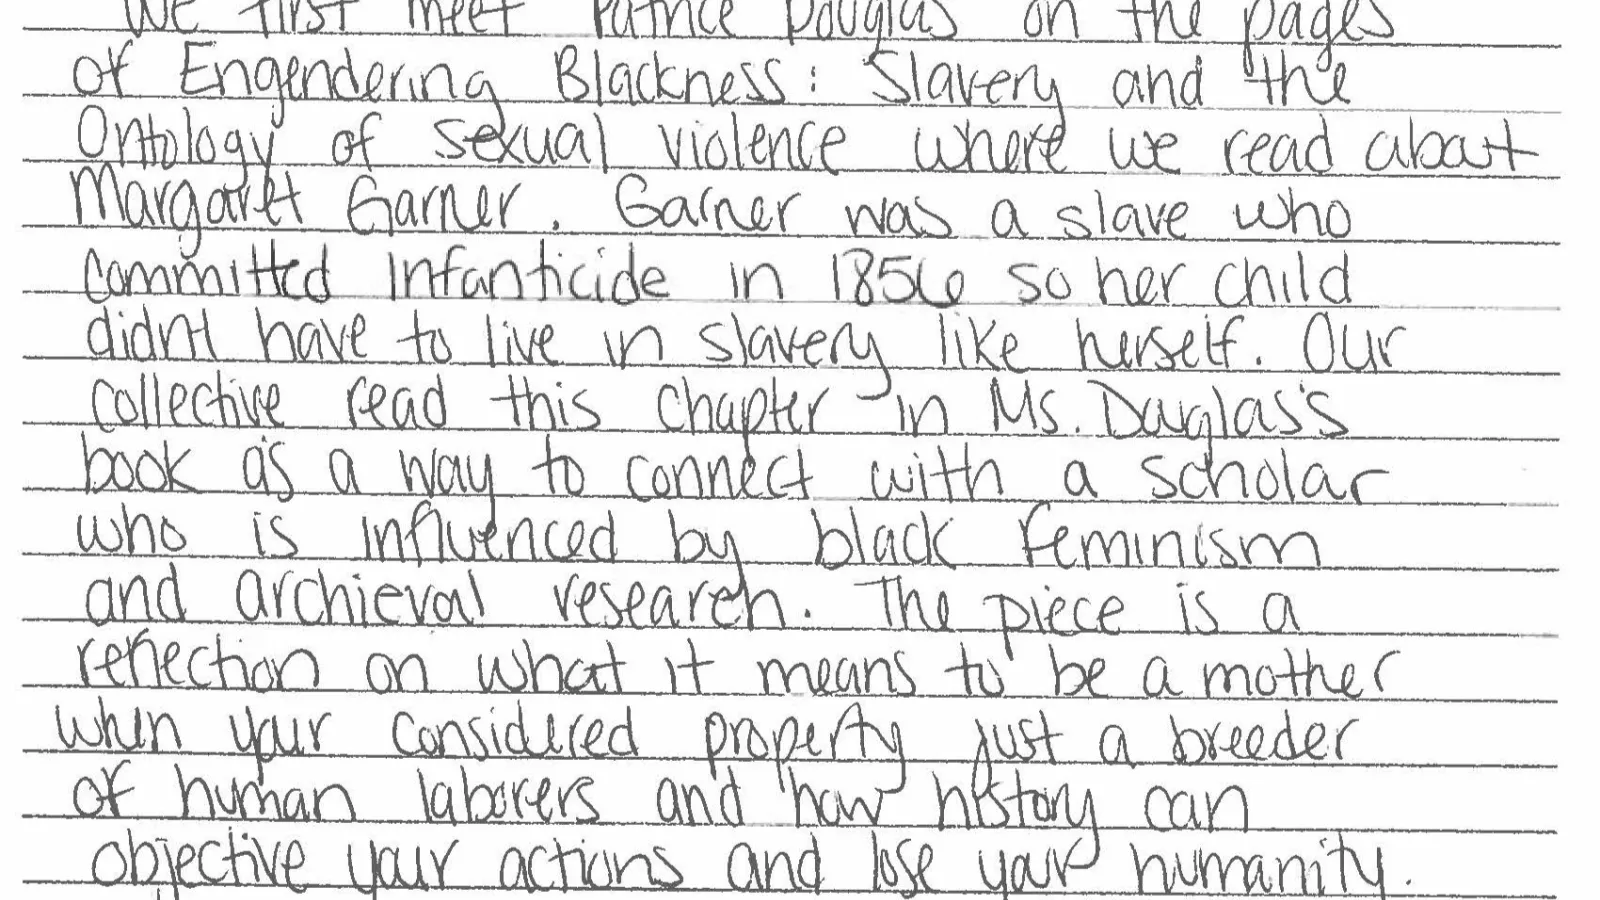 We first meet Patrice Douglas on the pages
of Engendering Blackness: Slavery and the
Ontology of sexual violence where we read about
Margaret Garner. Garner was a slave who
committed infanticide in 1856 so her child
didnt have to live in slavery like herself. Our
collective read this chapter in Ms. Douglas's
book as a way to connect with a scholar
who is influenced by black feminism
and archieval research. The piece is a
reflection on what it means to be a mother
when your considered property just a breeder
of human laborers and how history can
objective your actions and lose your humanity.